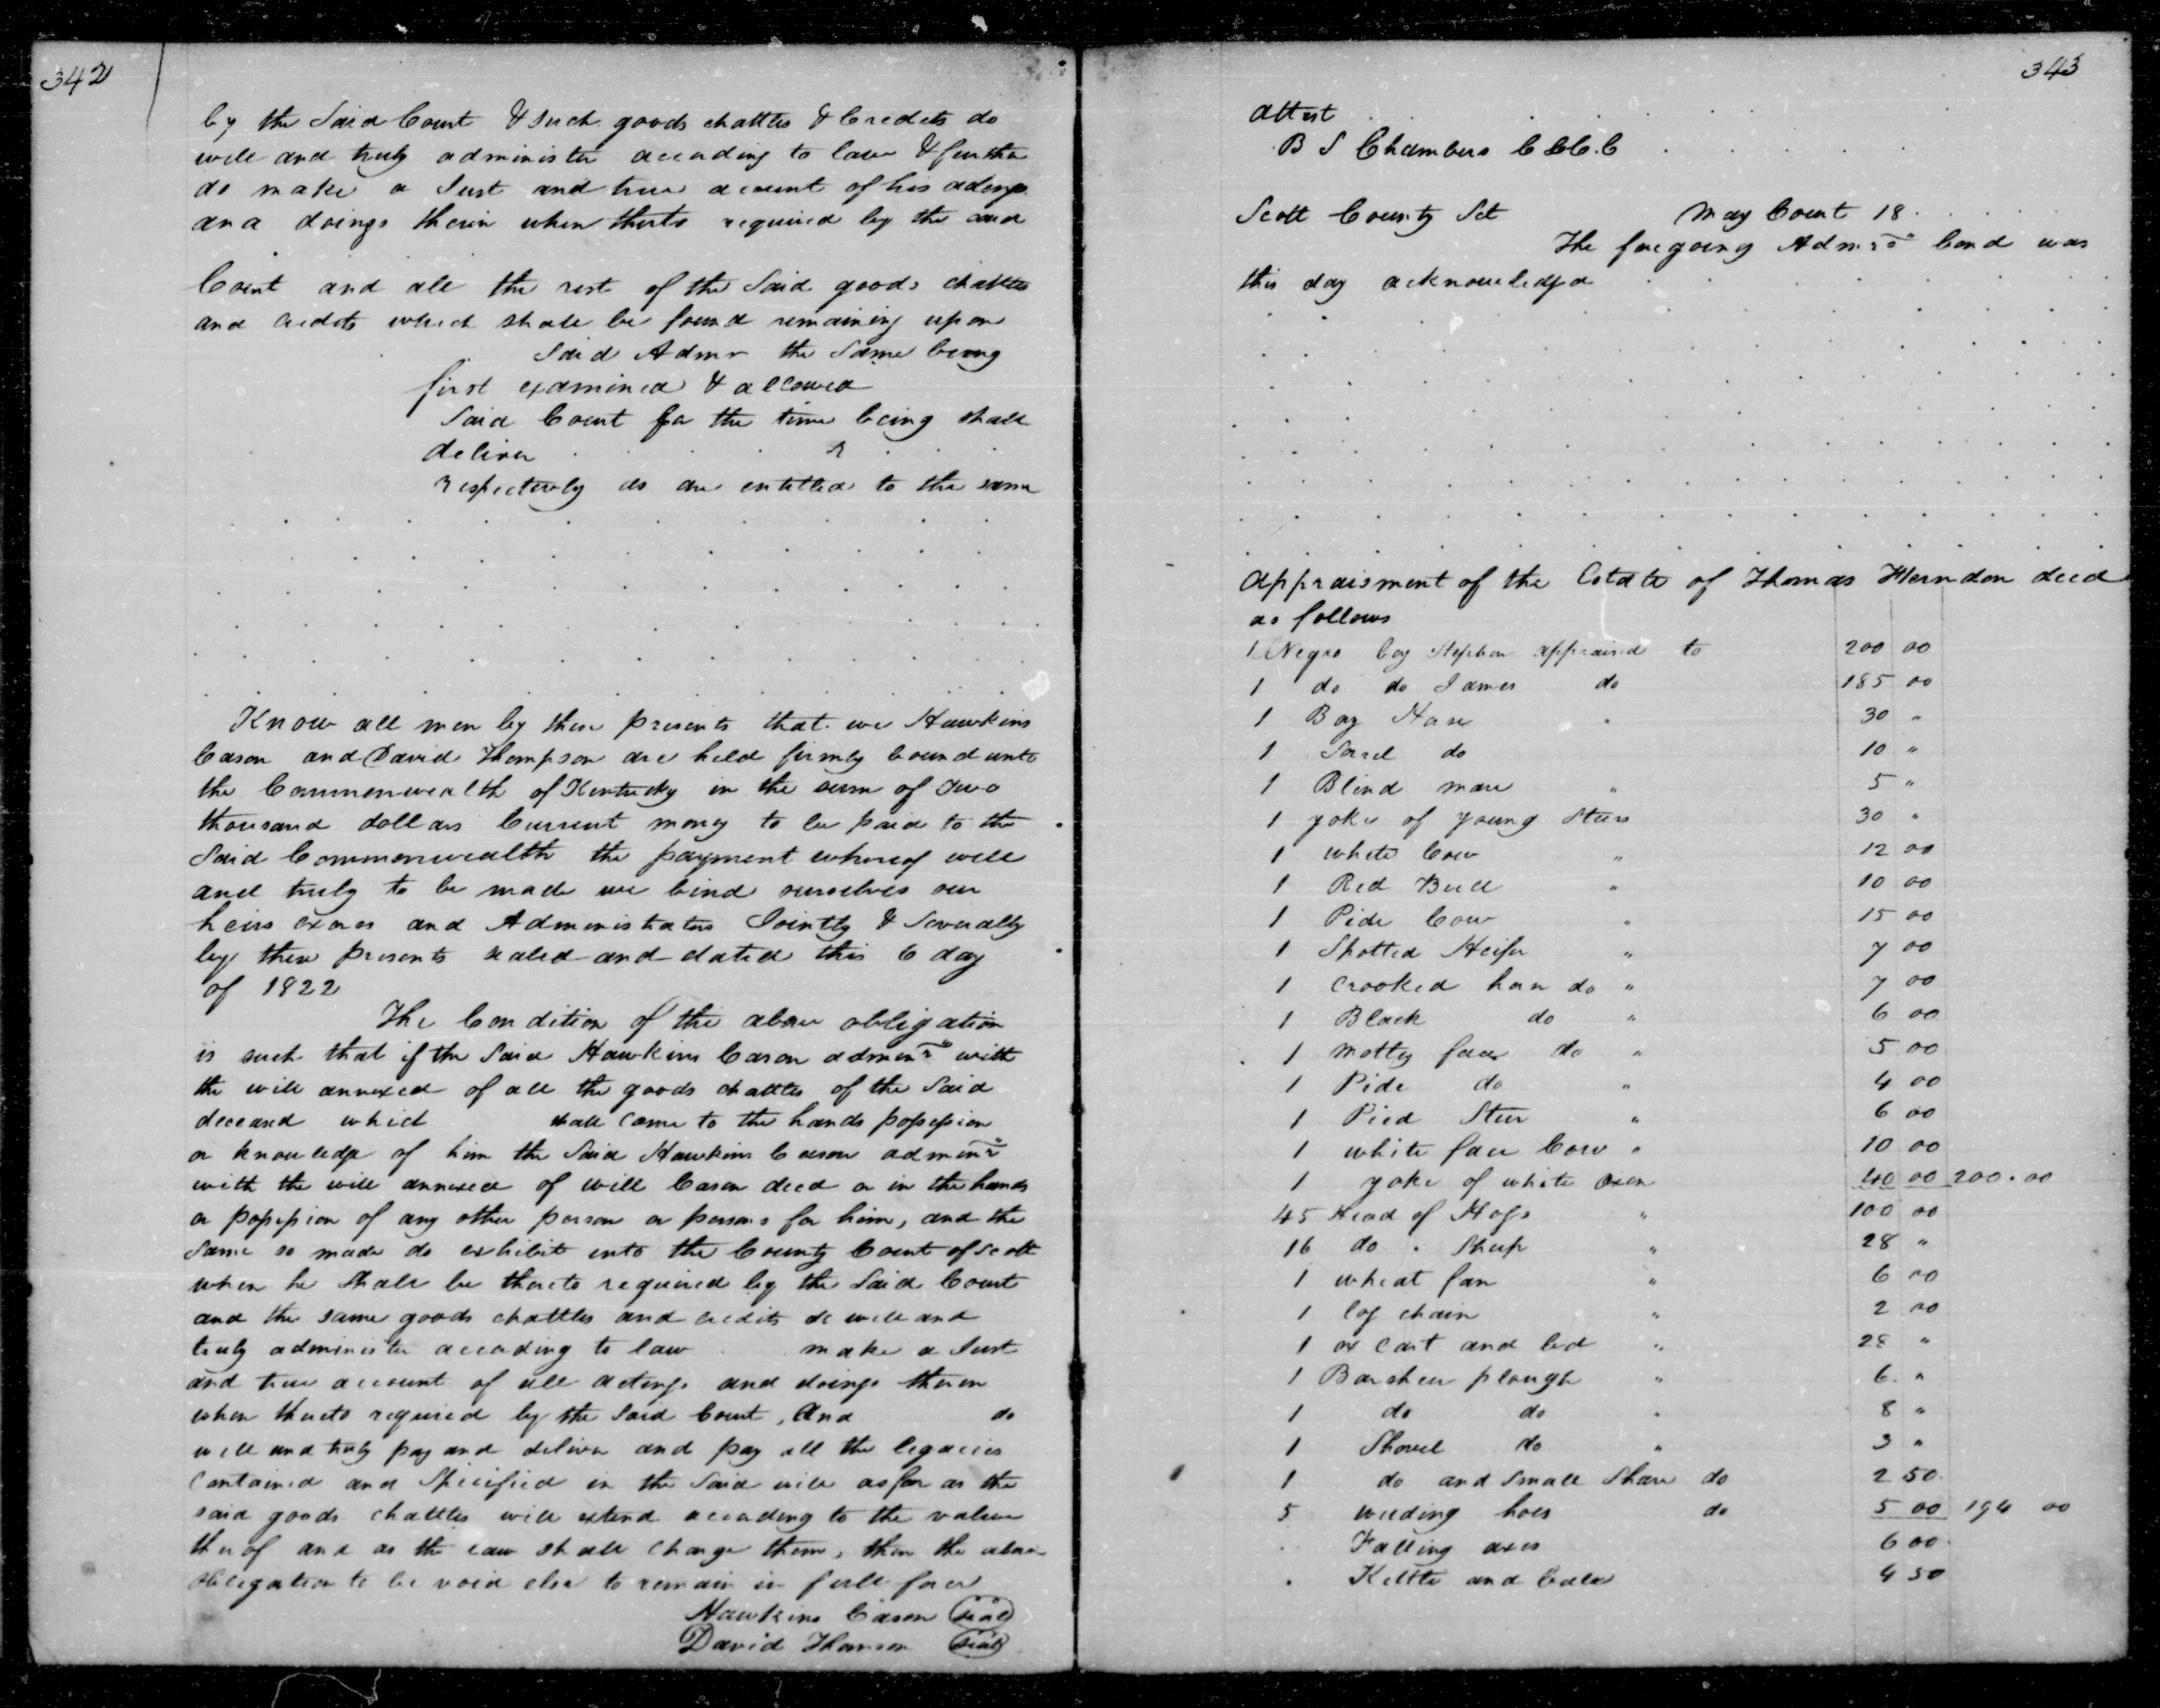 342
by the Said Court & such goods chattles & Credets do
will and truly administer according to law & further
do make a Just and true account of his actings
and doings therin when therto required by the said
Court and all the rest of the Said goods chattles
and credits which shall be found remaining upon
Said Admr the Same being
first examined & allowed
Said Court for the time being shall
deliver
respectively as are entitled to the same
Know all men by these presents that we Hawkins
Cason and David Thompson are held firmly bound unto
the Commonwealth of Kentucky in the sum of Two
thousand dollars Current money to be paid to the
Said Commonwealth the payment whereof well
and truly to be made we bind ourselves our
heirs exors and Administrators Jointly & Severally
by these presents sealed and dated this 6 day
of 1822
The Condition of the above obligation
is such that if the Said Hawkins Cason adminr with
the will annexed of all the goods chattles of the Said
deceased which shall come to the hands possession
or knowledge of him the Said Hawkins Cason adminr
with the will annexed of Will Cason decd or in the hands
or possession of any other person or persons for him, and the
Same so made do exhibit into the County Court of Scott
when he Shall be thereto required by the Said Court
and the same goods chattles and credits do well and
truly administer according to law make a Just
and true account of all actings and doings therein
when thereto required by the Said Court, And do
well and truly pay and deliver and pay all the legacies
Contained and Specified in the Said will as far as the
said goods chattles will extend according to the value
therof and as the law shall charge them, then the above
obligation to be void else to remain in full force
Hawkins Cason seal
David Thomson seal
343
Attest
B S Chambers C.S.C.C
Scott County Sct May Court 18
The foregoing Admrs bond was
this day acknowledged
Appraisment of the Estate of Thomas Herndon decd
as follows
1 Negro boy Stephen appraised to 200 00
1 do do James do 185 00
1 Bay Horse " 30 "
1 Sorrel do 10 "
1 Blind mare " 5 "
1 yoke of young Steers 30 "
1 white Cow " 12 00
1 Red Bull " 10 00
1 Pide Cow " 15 00
1 Spotted Heifer " 7 00
1 Crooked horn do " 7 00
1 Black do " 6 00
1 Motley face do " 5 00
1 Pide do " 4 00
1 Pied Steer " 6 00
1 white face Cow " 10 00
1 yoke of white Oxen 40 00 200.00
45 Head of Hogs " 100 00
16 do . Sheep " 28 "
1 wheat fan " 6 00
1 log chain " 2 00
1 ox Cart and bed " 28 "
1 Barsheer plough " 6 "
1 do do " 8 "
1 Shovel do " 3 "
1 do and Small Share do 2 50
5 weeding hoes do 5 00 194 00
Falling axes 6 00
Kettle and 4 50